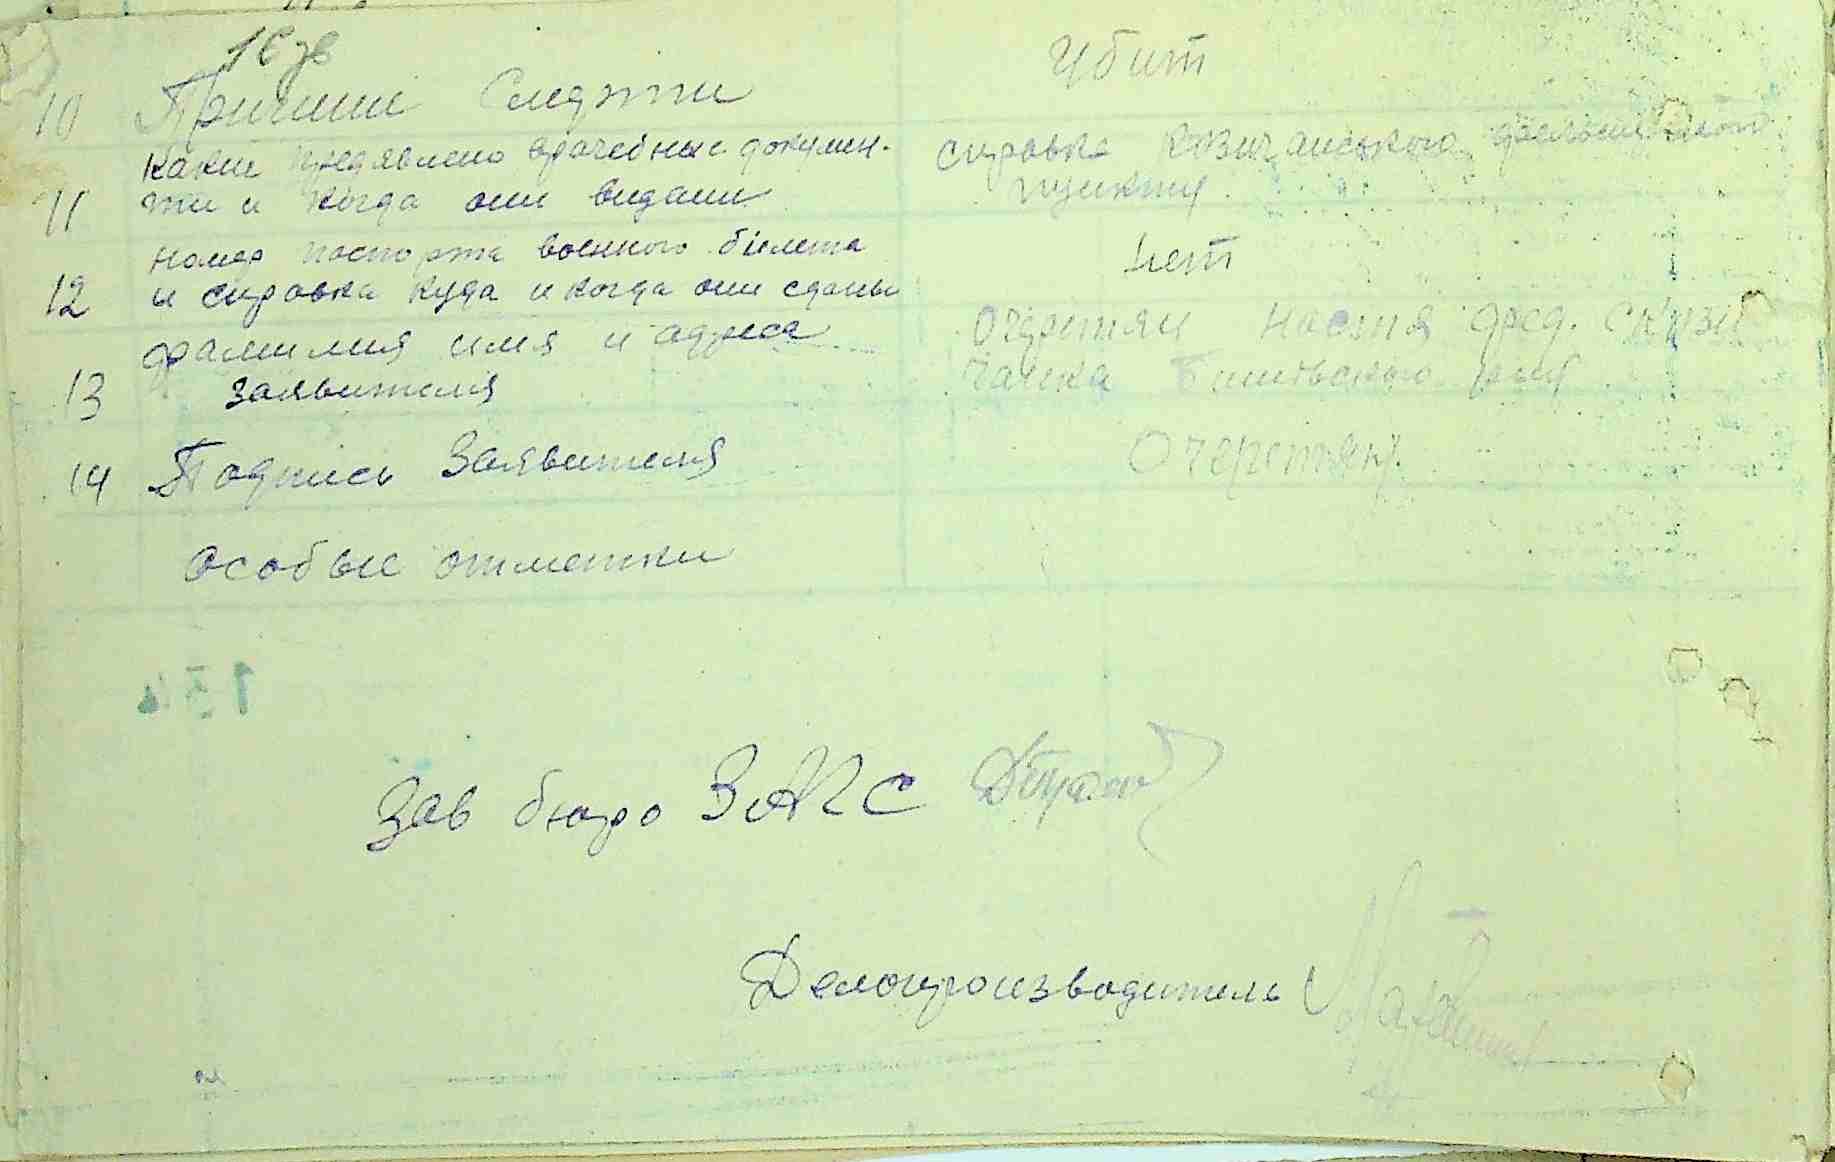 16 зв
10 Причини Смерти Убит
Какие предявлено врачебные докумен-
11 ти и когда они видани справка фельдшерского
пункту
номер паспорта военного білета
12 и справка куда и когда они сданы нет
фамилия имя и адреса Очеретян Настя
13 заявителя
14 Подпись Заявителя Очеретян
Особые отметки
134
Зав бюро ЗАГС
Делопроизводитель